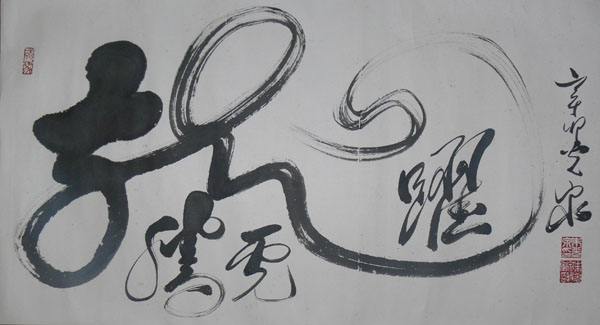 龍騰虎躍
辛卯